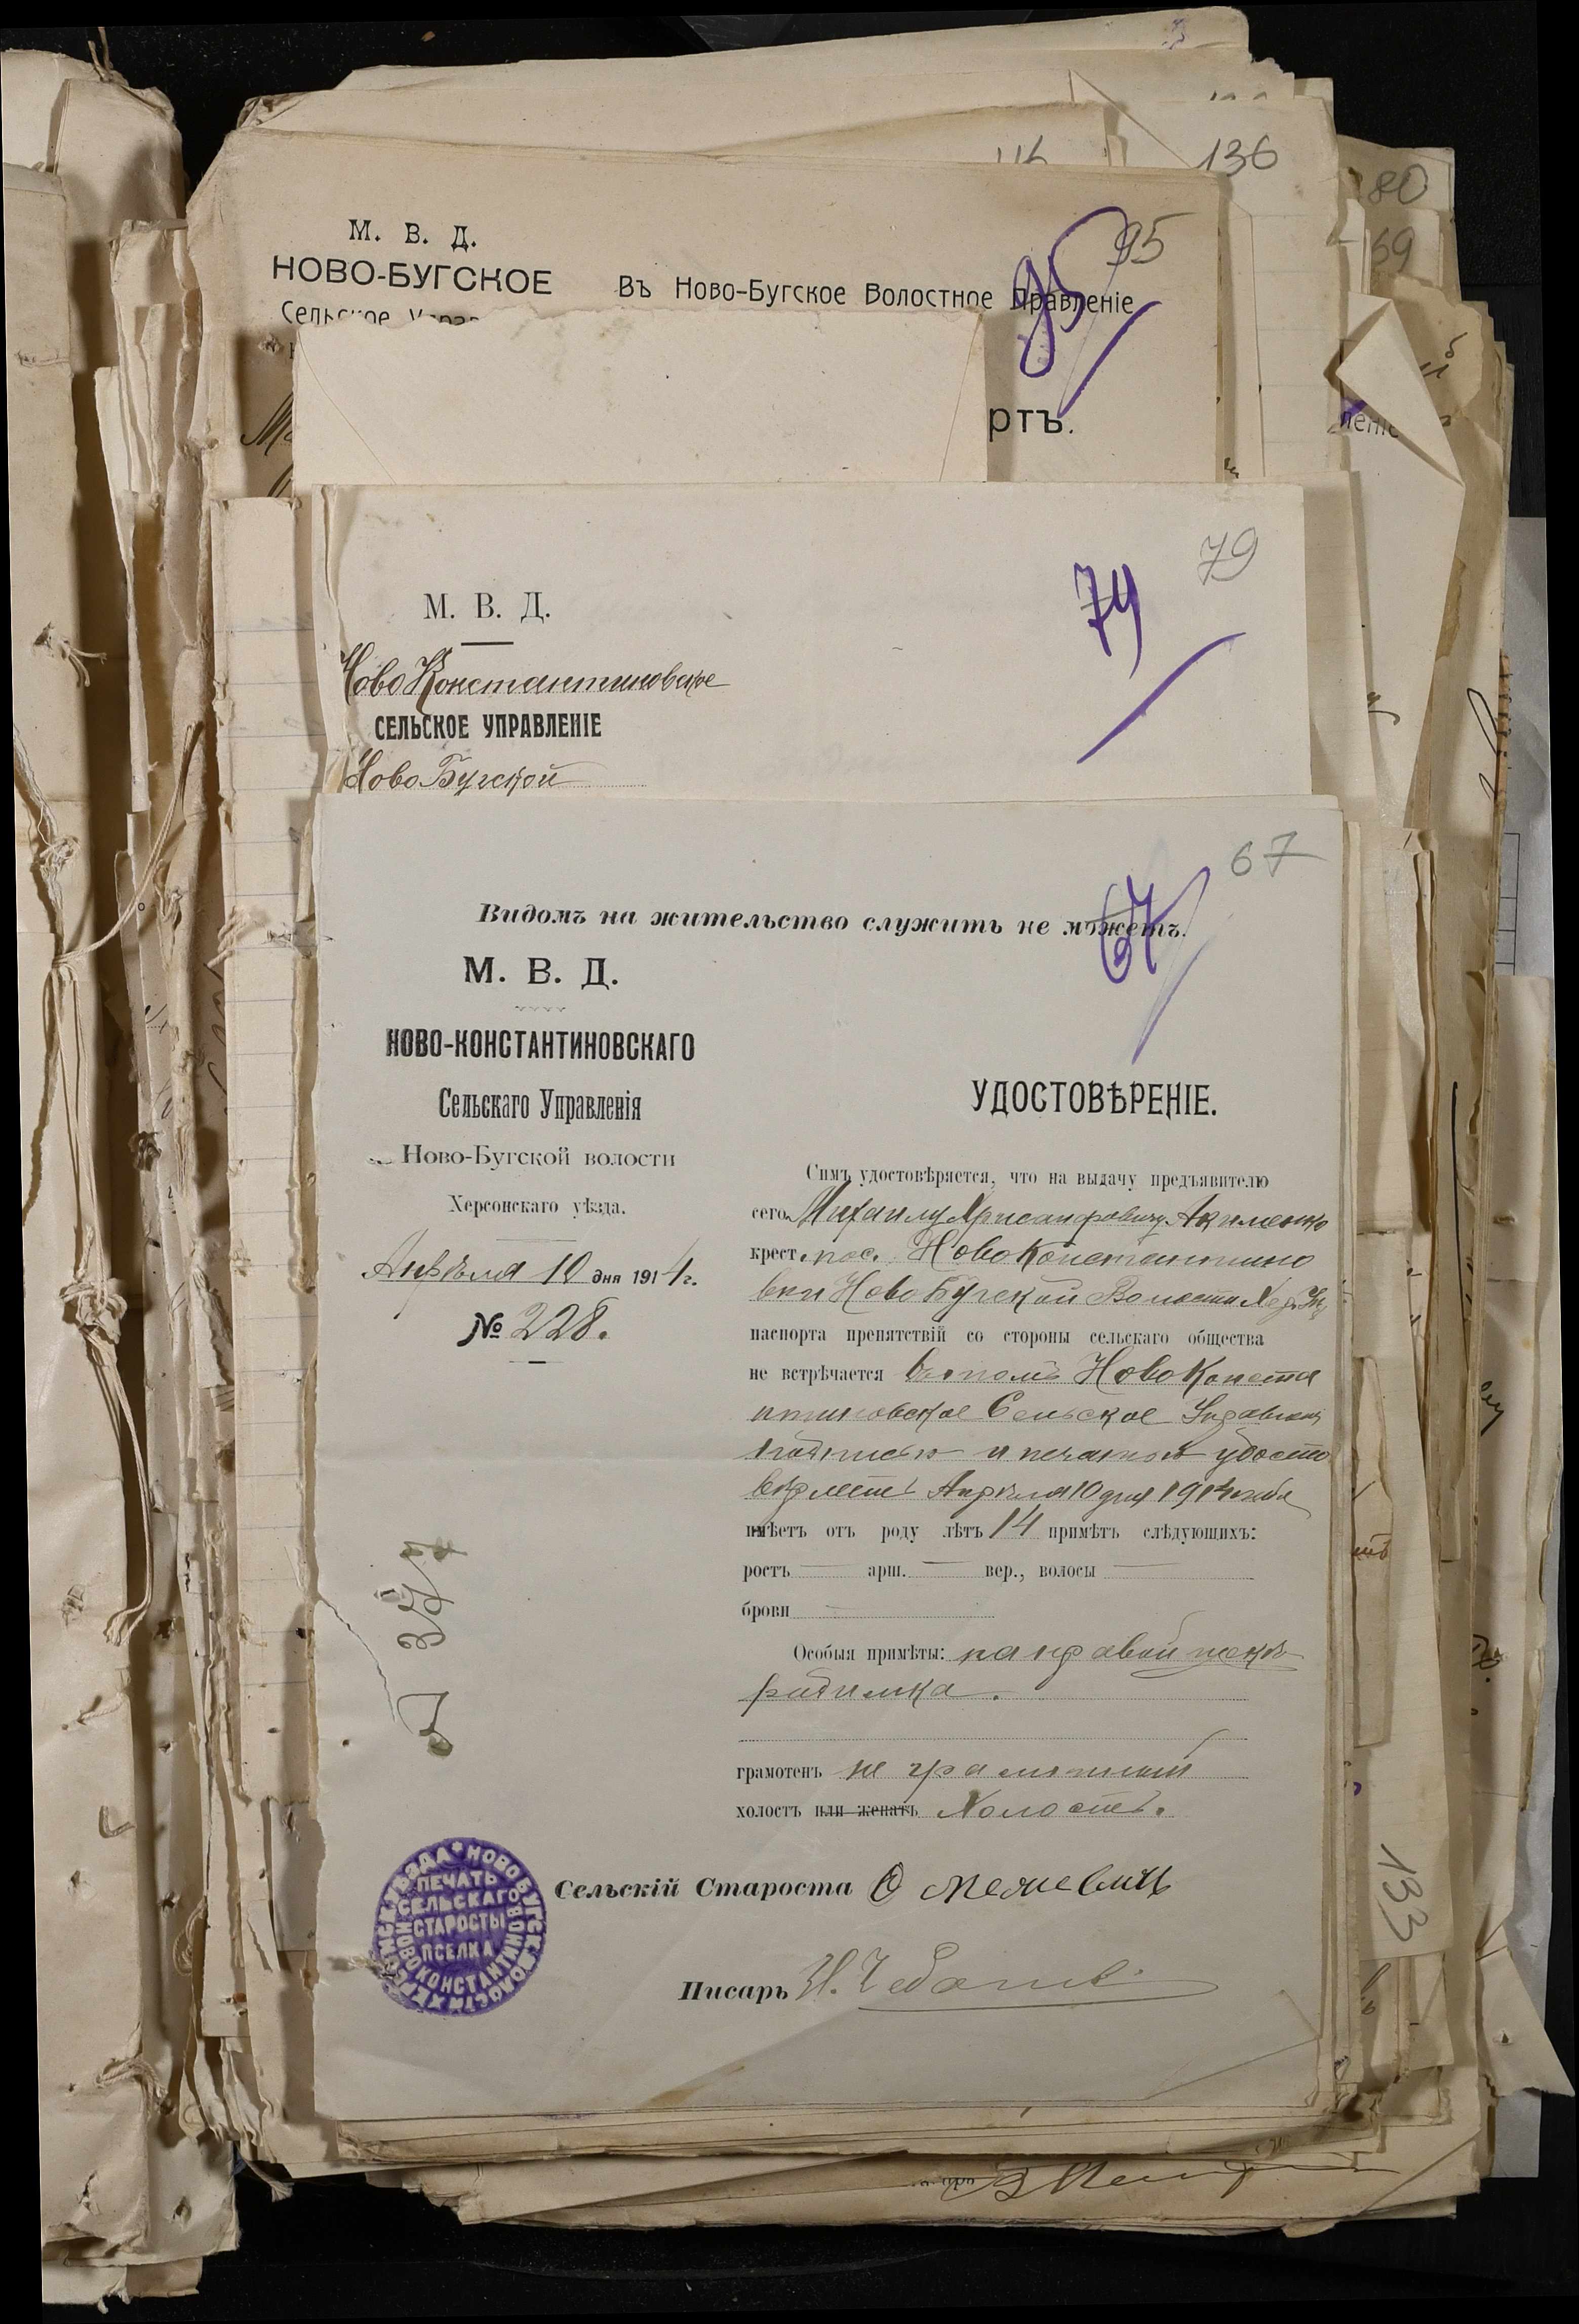 136
80
69
95
95
М. В. Д.
НОВО-БУГСКОЕ
Въ Ново-Бугское Волостное Правленіе
Сельское
ртъ.
79
79
М. В. Д.
Ново Константиновское
СЕЛЬСКОЕ УПРАВЛЕНІЕ
Ново Бугской
67
67
Видомъ на жительство служить не можетъ.
М. В. Д.
НОВО-КОНСТАНТИНОВСКАГО
Сельскаго Управленія
Ново-Бугской волости
Херсонскаго уѣзда.
Апрѣля 10 дня 1914 г.
№ 228.
УДОСТОВѢРЕНІЕ.
Симъ удостовѣряется, что на выдачу предъявителю
сего Михаилу Хрисанфовичу Акименко
крест. пос. Ново Константино
вки Ново Бугской Волости Хер. Уѣ.
паспорта препятствій со стороны сельскаго общества
не встрѣчается въ томъ Ново Конста
нтиновское Сельское Управленіе
подписью и печатью удосто
вѣряетъ Апрѣля 10 дня 1914 года
имѣетъ отъ роду лѣтъ 14 примѣтъ слѣдующихъ:
ростъ арш. вер., волосы
брови
Особыя примѣты: на правой щекѣ
родимка.
грамотенъ не грамотный
холостъ или женатъ Холостъ.
Сельскій Староста
Писарь
ПЕЧАТЬ
СЕЛЬСКАГО
СТАРОСТЫ
ПСЕЛКА
НОВОКОНСТАНТИНОВКИ
133